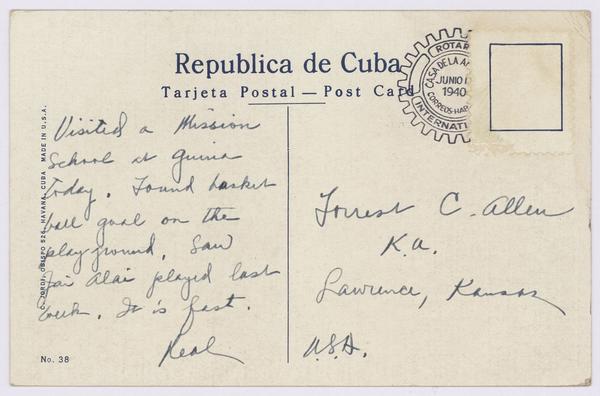 Republica de Cuba
Tarjeta Postal — Post Card
ROTAR
CASA DE LA AM
JUNIO 1
1940
CORREOS-HAB
INTERNATI
C. JORDI, OBISPO 526, HAVANA, CUBA MADE IN U.S.A.
Visited a Mission
School at Guinia
today. Found basket
ball goal on the
playground. Saw
Jai Alai played last
week. It is fast.
Neal
Forrest C. Allen
K.U.
Lawrence, Kansas
U.S.A.
No. 38